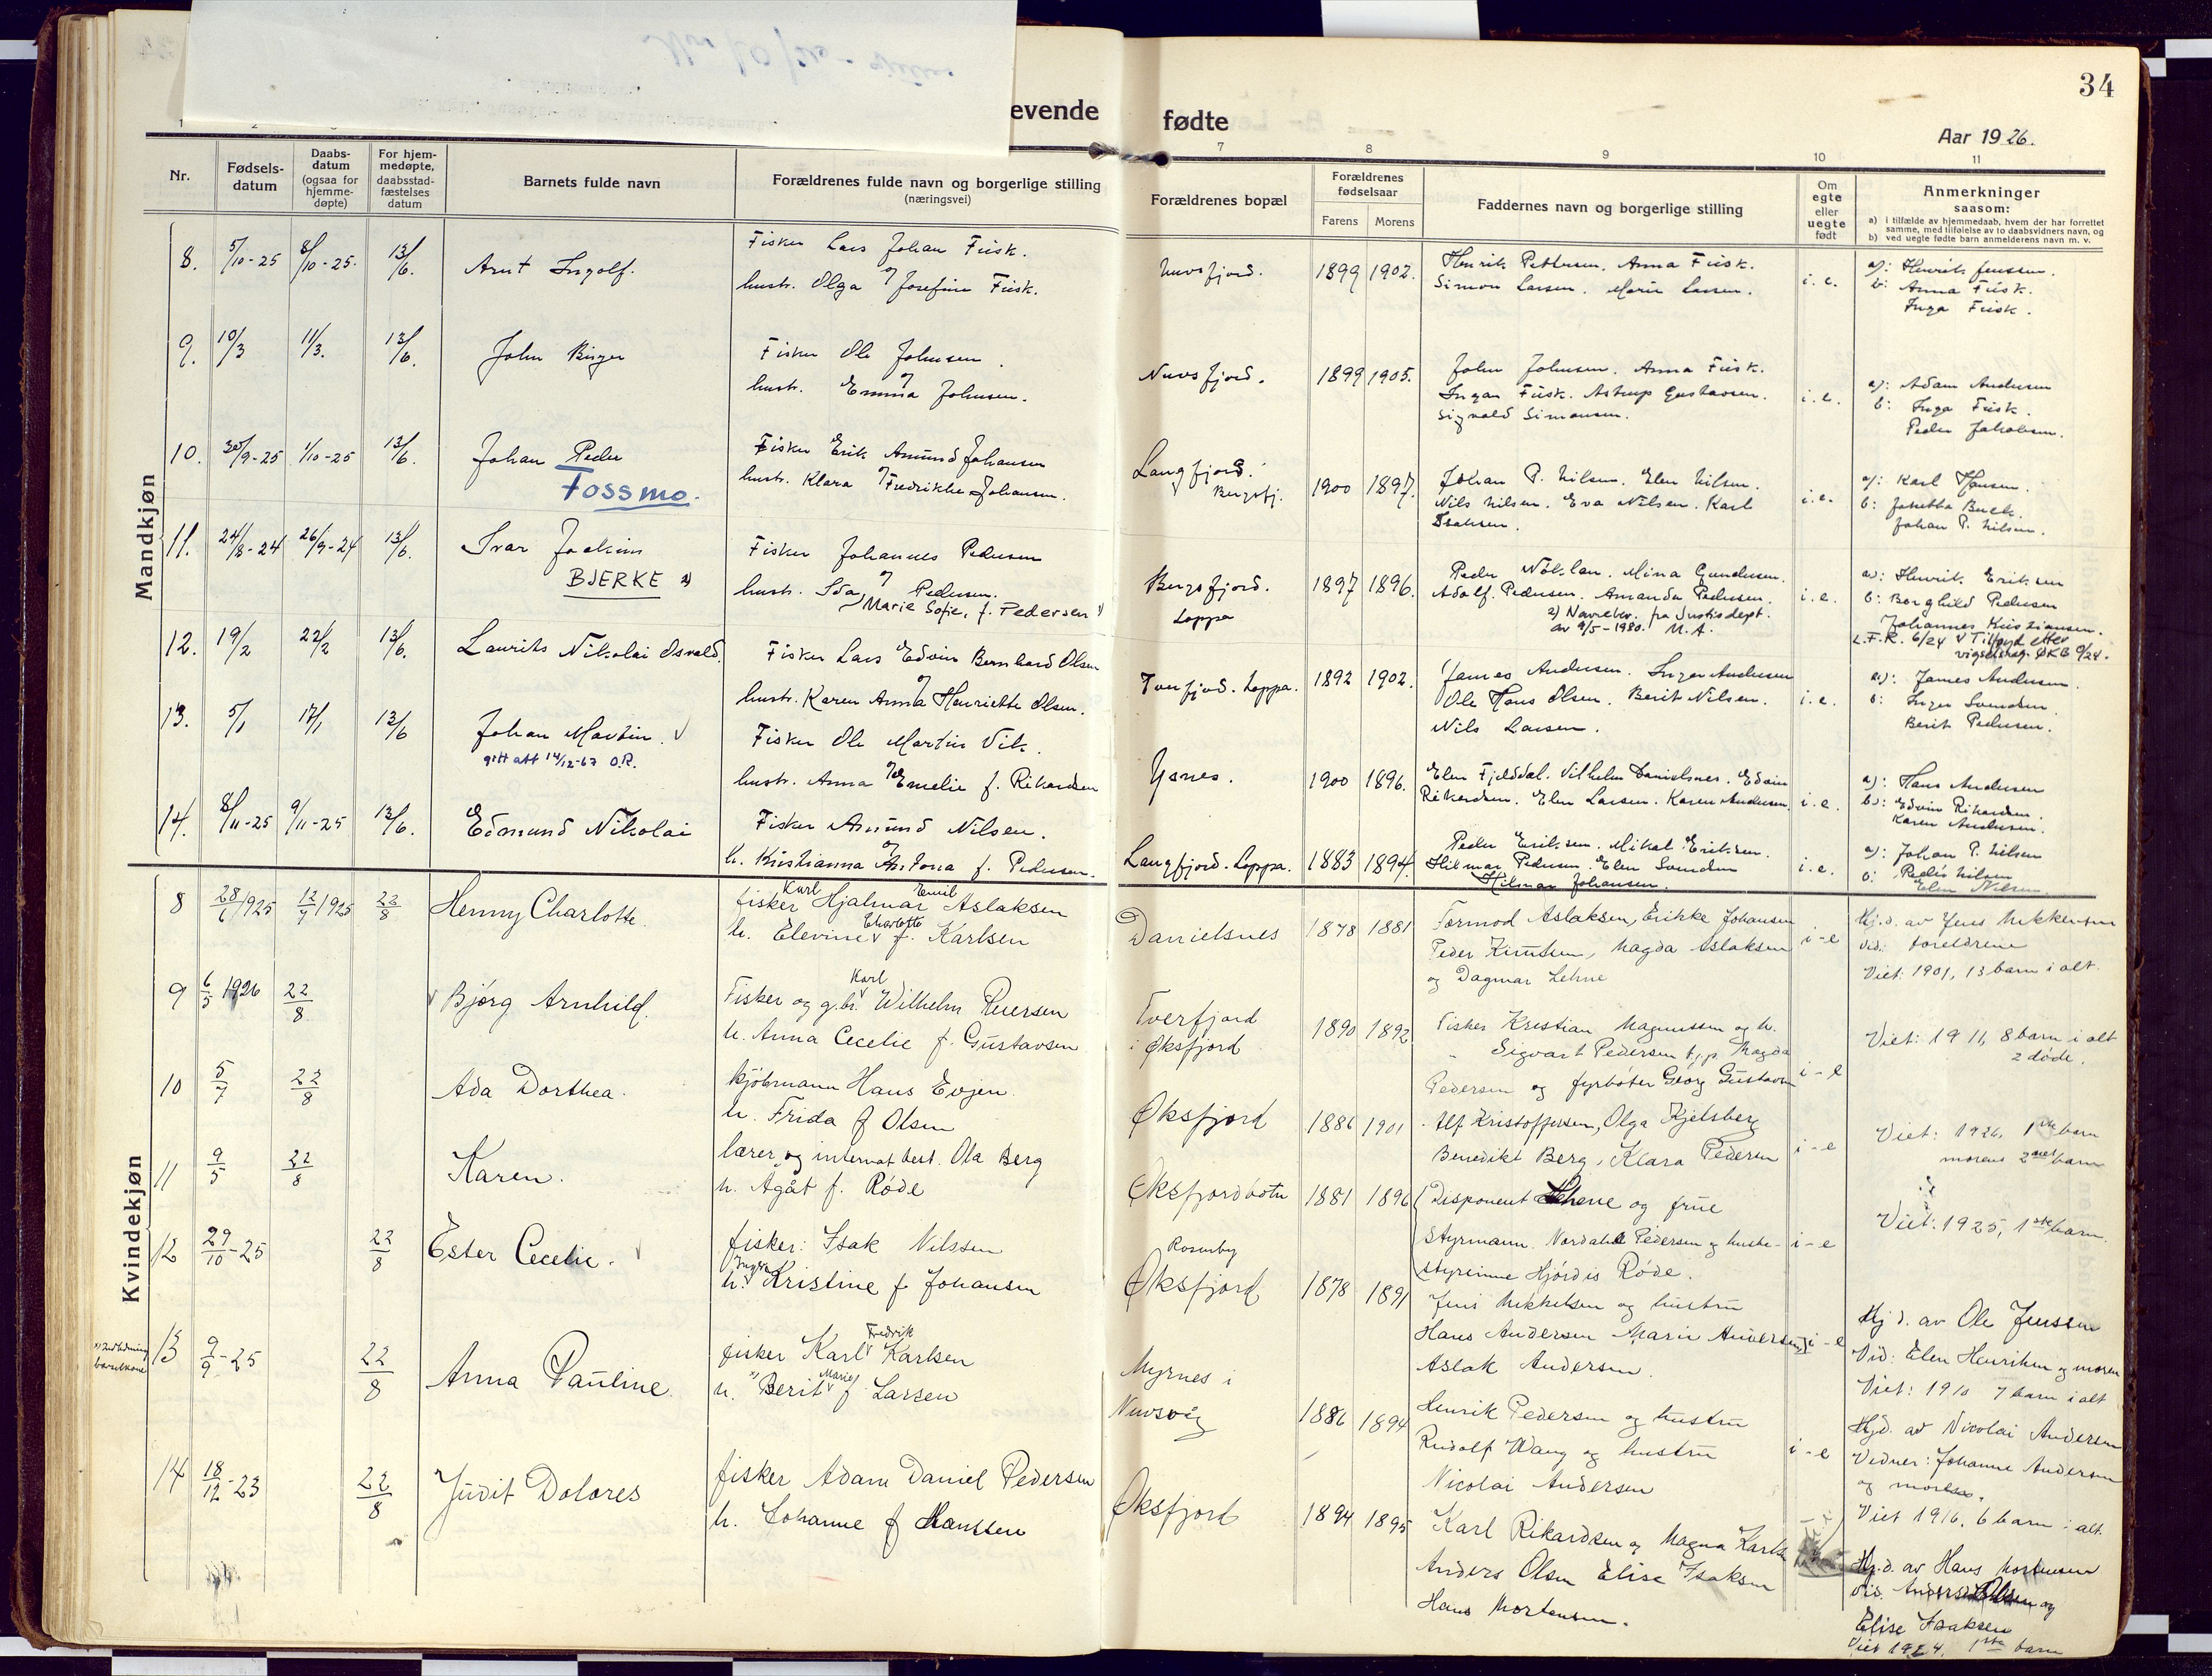 evende fødte
34
Aar 1926.
1 2 7 8 9 10 11
Nr.
Fødsels-
datum
Daabs-
datum
(ogsaa for
hjemme-
døpte)
For hjem-
medøpte,
daabsstad-
fæstelses
datum
Barnets fulde navn
Forældrenes fulde navn og borgerlige stilling
(næringsvei)
Forældrenes bopæl
Forældrenes
fødselsaar
Farens Morens
Faddernes navn og borgerlige stilling
Om
egte
eller
uegte
født
Anmerkninger
saasom:
a) i tilfælde av hjemmedaab, hvem der har forrettet
samme, med tilføielse av to daabsvidners navn, og
b) ved uegte fødte barn anmelderens navn m. v.
Mandkjøn
8. 5/10-25 8/10-25. 13/6. Arnt Ingolf.
Fisker Lars Johan Fiisk.
og
hustr. Olga Josefine Fiisk.
Nuvsfjord. 1899 1902.
Henrik Pettersen. Anna Fiisk.
Simon Larsen. Marie Larsen.
i. e.
a): Henrik Jenssen.
b: Anna Fiisk.
Inga Fiisk.
9. 10/3 11/3. 13/6. John Birger
Fisker Ole Johnsen
og
hustr. Emma Johnsen.
Nuvsfjord. 1899 1905.
John Johnsen. Anna Fiisk.
Ingar Fiisk. Astrup Gustavsen.
Sigvald Simonsen.
i. e.
a): Adam Andersen
b: Inga Fiisk.
Peder Jakobsen.
10. 30/9-25 1/10-25 13/6. Johan Peder
Fossmo.
Fisker Erik Amund Johansen
og
hustr. Klara Fredrikke Johansen.
Langfjord.
Bergsfj. 1900 1897.
Johan P. Nilsen. Elen Nilsen.
Nils Nilsen. Eva Nilsen. Karl
Isaksen.
i. e.
a): Karl Hansen.
b: Josetta Buck.
Johan P. Nilsen.
11. 24/8-24 26/9-24 13/6. Ivar Joakim
BJERKE 2)
Fisker Johannes Pedersen
og
hustr. Ida Pedersen.
Marie Sofie, f. Pedersen 1)
Bergsfjord.
Loppa 1897 1896.
Mina Gundersen.
Adolf Pedersen. Amanda Pedersen.
2) Navnebev. fra Justisdept.
av 9/5-1980. M.A.
i. e.
a): Henrik Eriksen
b: Borghild Pedersen
Johannes Kristiansen.
L.F.R. 6/24 1 Tilføyd etter
vigselsreg. ØKB 9/24.
12. 19/2 22/2 13/6. Laurits Nikolai Osvald.
Fisker Lars Edvin Bernhard Olsen
og
hustr. Karen Anna Henriette Olsen.
Tverfjord. Loppa. 1892 1902.
James Andersen. Inger Andersen
Ole Hans Olsen. Berit Nilsen.
Nils Larsen.
i. e.
a): James Andersen.
b: Inger Svendsen.
Berit Pedersen.
13. 5/1 17/1 13/6 Johan Martin. V
gitt att 14/12-67 O.R.
Fisker Ole Martin Vik.
og
hustr. Anna Emelie f. Rikardsen
Ysnes. 1900 1896.
Elen Fjelddal. Vilhelm Danielsnes. Edvin
Rikardsen. Elen Larsen. Karen Andersen.
i. e.
a): Hans Andersen
b): Edvin Rikardsen.
Karen Andersen.
14. 8/11-25 9/11-25 13/6. Edmund Nikolai
Fisker Amund Nilsen.
og
h. Kristianna Antona f. Pedersen.
Langfjord. Loppa. 1883 1894.
Peder Eriksen. Mikal Eriksen.
Hilmar Pedersen. Elen Svendsen
Hilmar Johansen.
i. e.
a): Johan P. Nilsen
b: Peder Nilsen
Elen Nilsen.
Kvindekjøn
8 28/6 1925 12/7 1925 22/8 Henny Charlotte.
Karl Emil
fisker Hjalmar Aslaksen
Charlotte
h. Elevine f. Karlsen
Danielsnes 1878 1881
Tormod Aslaksen, Erikke Johansen
Peder Knutsen, Magda Aslaksen
og Dagmar Lehne
i-e
Hj.d. av Jens Mikkelsen
Vid: foreldrene
Viet: 1901, 13 barn i alt.
9 6/5 1926 22/8 Bjørg Arnhild.
Karl
Fisker og g.br. Wilhelm Reiersen
h. Anna Cecelie f. Gustavsen
Tverfjord
i Øksfjord 1890 1892
Fisker Kristian Magnussen og h.
" Sigvart Pedersen t.j.p. Magda
Pedersen og fyrbøter Georg Gustavsen
i-e
Viet: 1911, 8 barn i alt
2 døde.
10 5/7 22/8 Ada Dorthea.
Kjøbmann Hans Evjen.
h. Frida f Olsen
Øksfjord 1886 1901
Alf Kristoffersen, Olga Kjelsberg
Benedikt Berg, Klara Pedersen
i-e
Viet: 1926, 1ste barn
morens 2net barn
11 9/5 22/8 Karen.
lærer og internatbest. Ola Berg
h. Agåt f. Røde
Øksfjordbotn 1881 1896
Disponent Lehne og frue
Styrmann Nordahl Pedersen og hustr-
styrerinne Hjørdis Røde.
i-e
Viet. 1925, 1ste barn.
12 29/10-25 22/8 Ester Cecelie.
fisker: Isak Nilssen
h. Kristine f Johansen
Rosenby
Øksfjord 1878 1891
Jens Mikkelsen og hustru
Hans Andersen Marie Andersen
Aslak Andersen.
i-e
Hj d. av Ole Jenssen
Vid: Elen Henriksen og moren
Viet: 1910 7 barn i alt
13 9/9-25 22/8 Anna Pauline.
Fredrik
fisker Karl Karlsen
Marie
h. Berit f Larsen
Myrnes i
Nuvsvåg 1886 1894
Henrik Pedersen og hustru
Rudolf Wang og hustru
Nicolai Andersen
i-e
Hjd. av Nicolai Andersen
Vedner: Johanne Andersen
og moren.
Viet 1916. 6 barn i alt.
14 18/12-23 22/8 Judit Dolores
fisker Adam Daniel Pedersen
h. Johanne f Hanssen
Øksfjord 1894 1895
Karl Rikardsen og Magna Karls
Anders Olsen Elise Isaksen
Hans Mortensen.
Hj.d. av Hans Mortensen
Vid. Anders Olsen og
Elise Isaksen
Viet 1924. 1ste barn